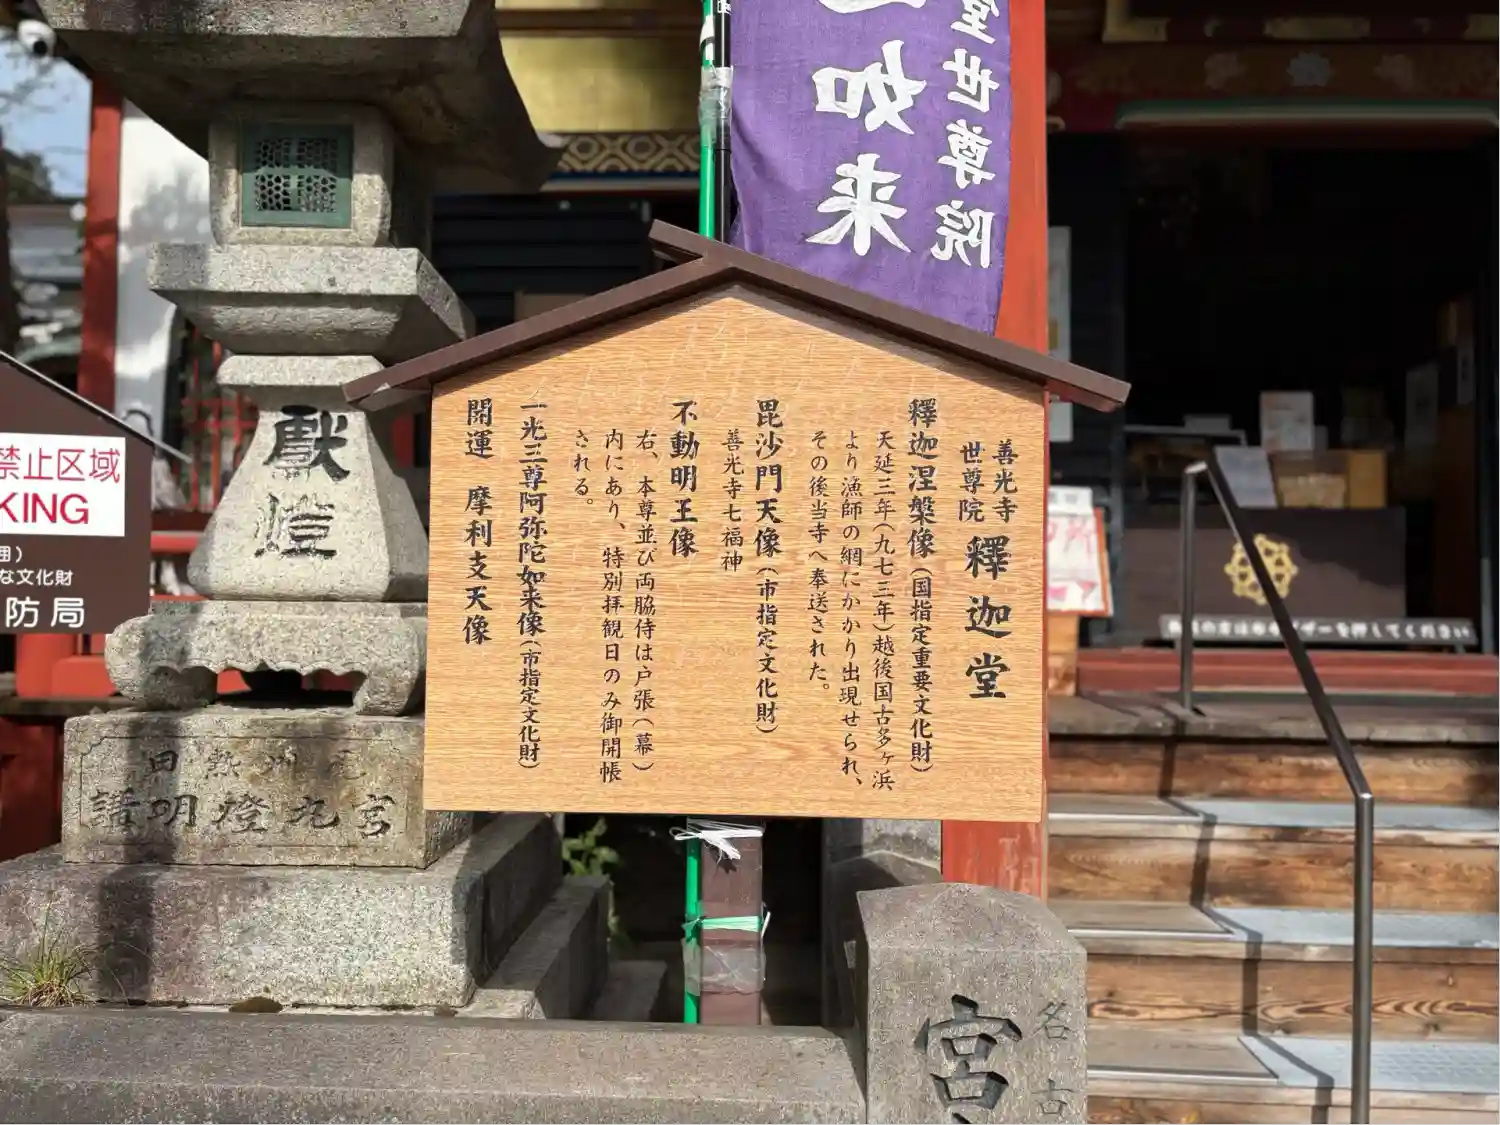 善光寺
世尊院
釋迦堂
釋迦涅槃像（国指定重要文化財）
天延三年（九七三年）越後国古多ヶ浜
より漁師の網にかかり出現せられ、
その後当寺へ奉送された。
毘沙門天像（市指定文化財）
善光寺七福神
不動明王像
右、本尊並び両脇侍は戸張（幕）
内にあり、特別拝観日のみ御開帳
される。
一光三尊阿弥陀如来像（市指定文化財）
開運　摩利支天像
堂世尊院
如来
獻燈
宮
名古
禁止区域
KING
な文化財
防局
の方はこのブザーを押してください